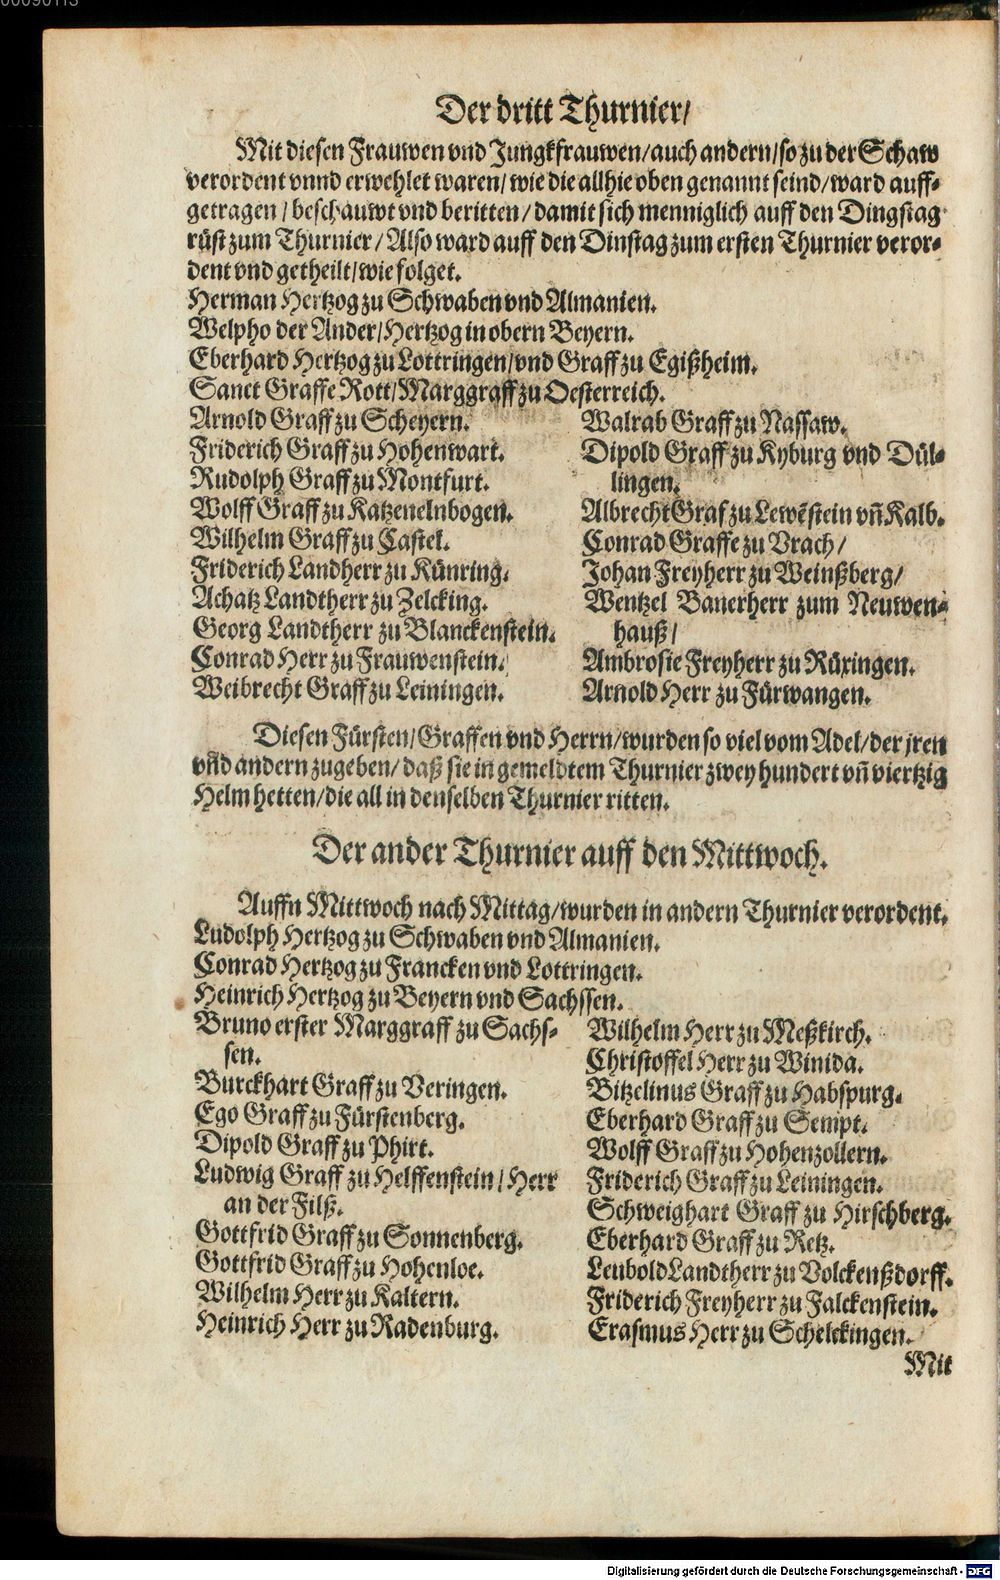 00090113
Der dritt Thurnier/
Mit diesen Frauwen vnd Jungkfrauwen/auch andern/so zu der Schaw
verordent vnnd erwehlet waren/ wie die allhie oben genannt seind/ward auff-
getragen/ beschauwt vnd beritten/ damit sich menniglich auff den Dingstag
rüst zum Thurnier/ Also ward auff den Dinstag zum ersten Thurnier veror-
dent vnd getheilt/wie folget.
Herman Hertzog zu Schwaben vnd Almanien.
Welpho der Ander/Hertzog in obern Beyern.
Eberhard Hertzog zu Lottringen/vnd Graff zu Egißheim.
Sanct Graffe Rott/Marggraff zu Oesterreich.
Arnold Graff zu Scheyern.
Friderich Graff zu Hohenwart.
Rudolph Graff zu Montfurt.
Wolff Graff zu Katzenelnbogen.
Wilhelm Graff zu Castel.
Friderich Landherr zu Künring.
Achatz Landtherr zu Zelcking.
Georg Landtherr zu Blanckenstein.
Conrad Herr zu Frauwenstein.
Weibrecht Graff zu Leiningen.
Walrab Graff zu Nassaw.
Dipold Graff zu Kyburg vnd Dül-
lingen.
Albrecht Graf zu Lewēstein vñ Kalb.
Conrad Graffe zu Vrach/
Johan Freyherr zu Weinßberg/
Wentzel Banerherr zum Neuwen-
hauß/
Ambrosie Freyherr zu Rüxingen.
Arnold Herr zu Fürwangen.
Diesen Fürsten/Graffen vnd Herrn/wurden so viel vom Adel/der jren
vñd andern zugeben/ daß sie in gemeldtem Thurnier zwey hundert vñ viertzig
Helm hetten/die all in denselben Thurnier ritten.
Der ander Thurnier auff den Mittwoch.
Auffn Mittwoch nach Mittag/wurden in andern Thurnier verordent.
Ludolph Hertzog zu Schwaben vnd Almanien.
Conrad Hertzog zu Francken vnd Lottringen.
Heinrich Hertzog zu Beyern vnd Sachssen.
Bruno erster Marggraff zu Sachs-
sen.
Burckhart Graff zu Veringen.
Ego Graff zu Fürstenberg.
Dipold Graff zu Phirt.
Ludwig Graff zu Helffenstein/ Herr
an der Filß.
Gottfrid Graff zu Sonnenberg.
Gottfrid Graff zu Hohenloe.
Wilhelm Herr zu Kaltern.
Heinrich Herr zu Radenburg.
Wilhelm Herr zu Meßkirch.
Christoffel Herr zu Winida.
Bitzelinus Graff zu Habspurg.
Eberhard Graff zu Sempt.
Wolff Graff zu Hohenzollern.
Friderich Graff zu Leiningen.
Schweighart Graff zu Hirschberg.
Eberhard Graff zu Retz.
Leubold Landtherr zu Volckenßdorff.
Friderich Freyherr zu Falckenstein.
Erasmus Herr zu Schelckingen.
Mit
Digitalisierung gefördert durch die Deutsche Forschungsgemeinschaft - DFG